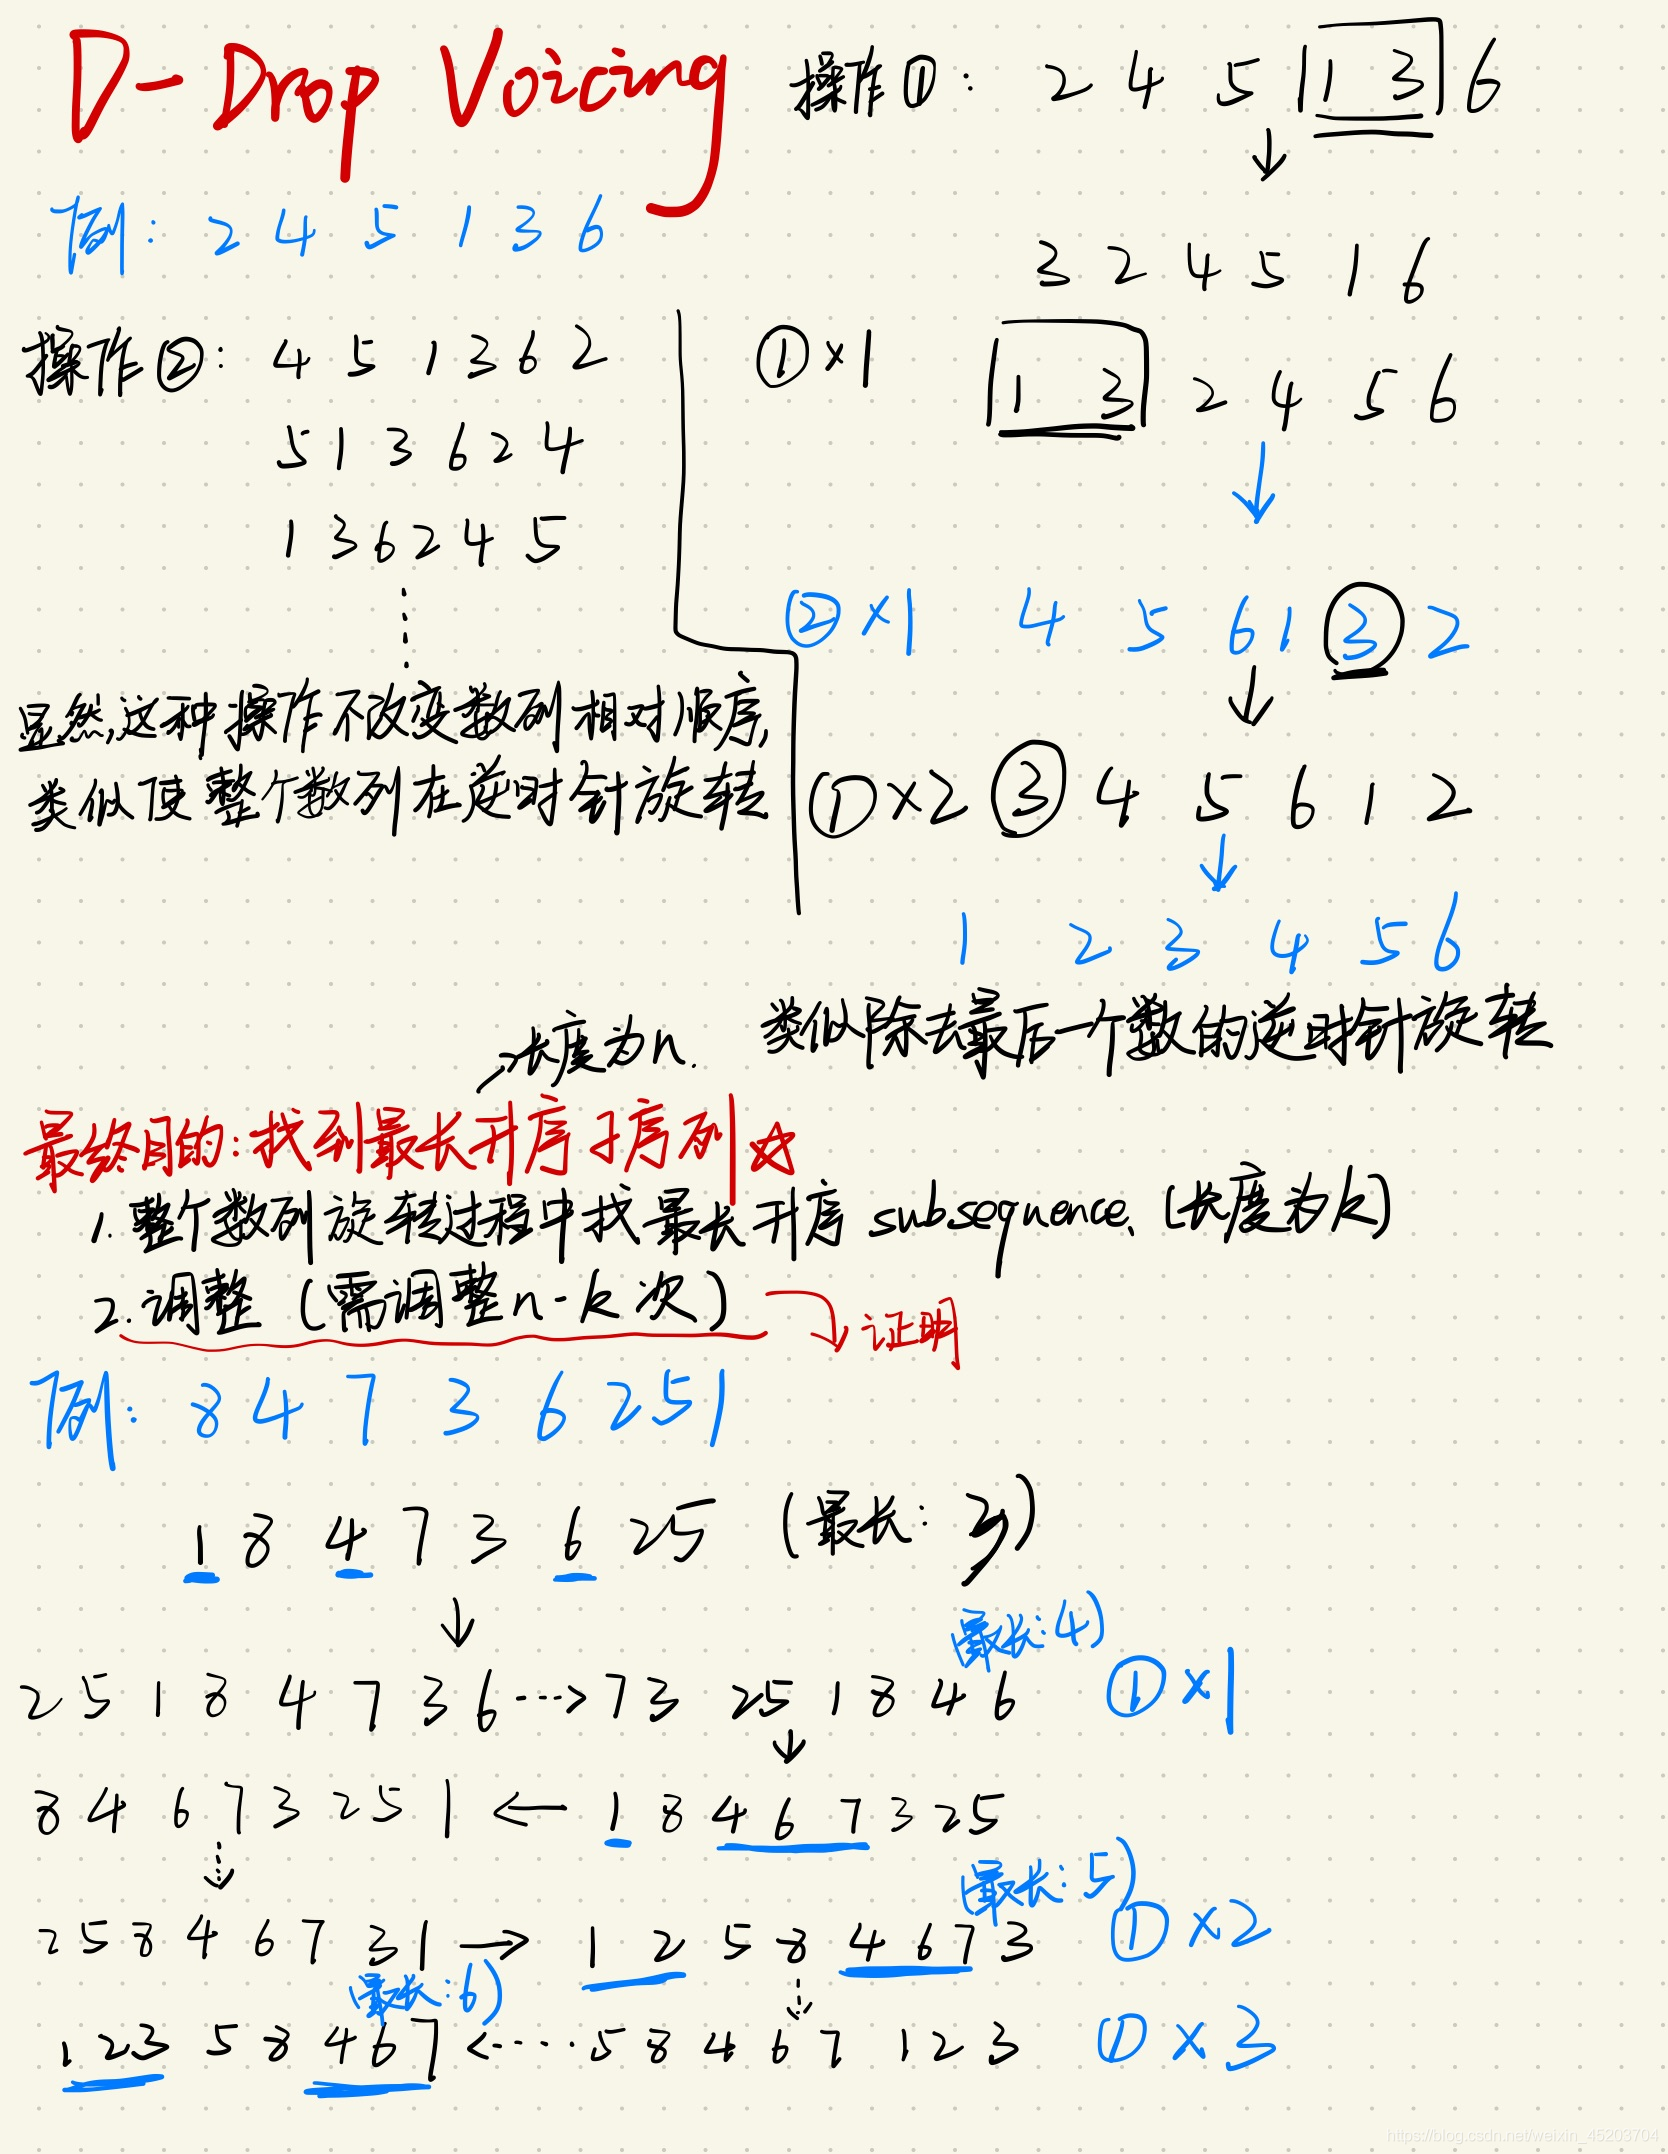 D-Drop Voicing
例: 2 4 5 1 3 6
操作②: 4 5 1 3 6 2
5 1 3 6 2 4
1 3 6 2 4 5
显然,这种操作不改变数列相对顺序,
类似使整个数列在逆时针旋转
操作①: 2 4 5 1 3 6
3 2 4 5 1 6
①×1 1 3 2 4 5 6
②×1 4 5 6 1 3 2
①×2 3 4 5 6 1 2
1 2 3 4 5 6
类似除去最后一个数的逆时针旋转
长度为n.
最终目的:找到最长升序子序列☆
1.整个数列旋转过程中找最长升序subsequence、(长度为k)
2.调整(需调整n-k次)
证明
例: 8 4 7 3 6 2 5 1
1 8 4 7 3 6 2 5 (最长: 3)
(最长:4)
2 5 1 8 4 7 3 6 ···> 7 3 2 5 1 8 4 6 ①×1
8 4 6 7 3 2 5 1 ← 1 8 4 6 7 3 2 5
(最长:5)
2 5 8 4 6 7 3 1 → 1 2 5 8 4 6 7 3 ①×2
(最长:6)
1 2 3 5 8 4 6 7 <···· 5 8 4 6 7 1 2 3 ①×3
https://blog.csdn.net/weixin_45203704